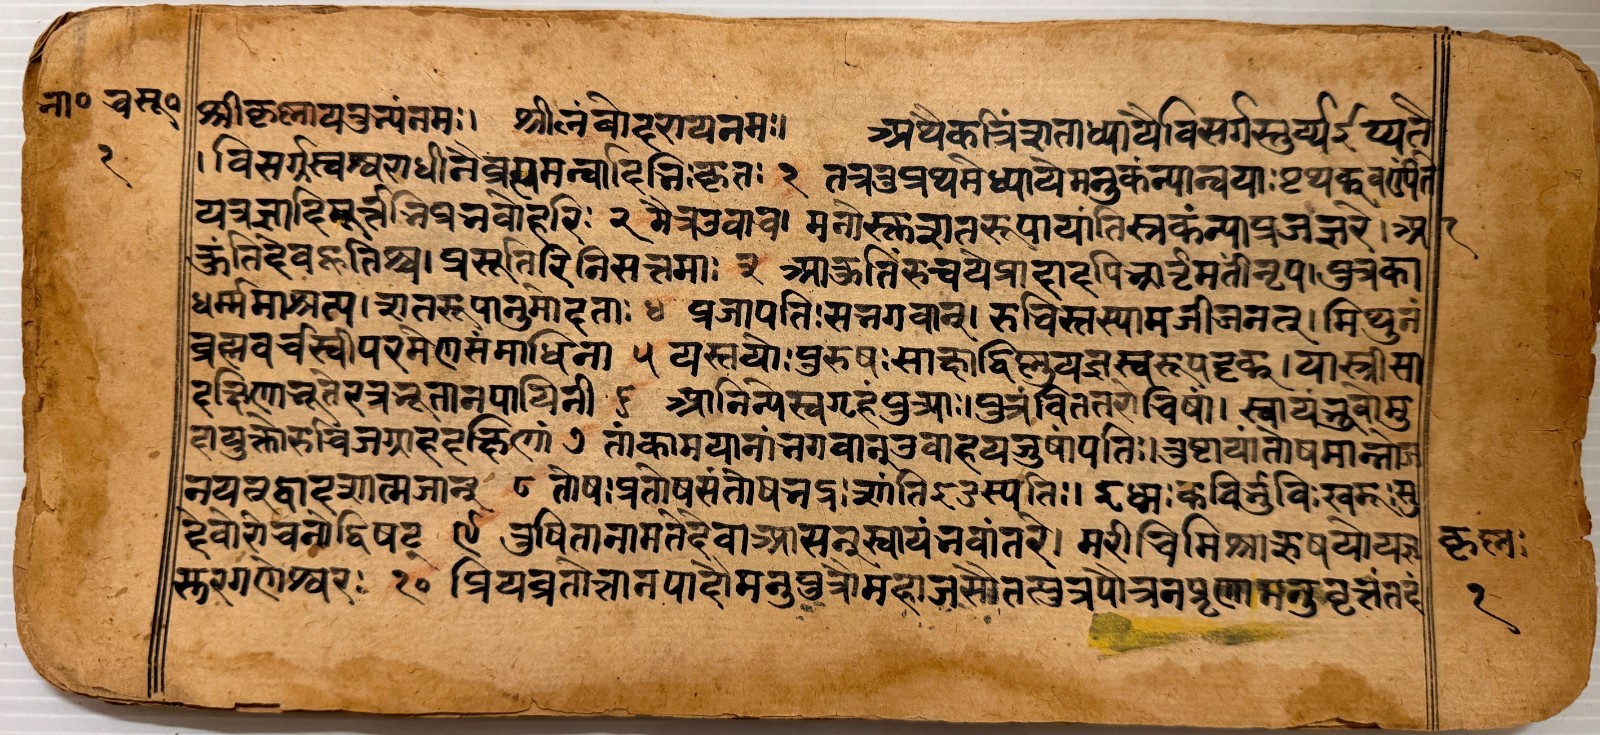 ना० च सू०
१
श्रीकृष्णायतुभ्यंनमः। श्रीलंबोदरायनमः॥ अथैकत्रिंशताध्यायैर्विसर्गस्तुर्य्यईर्य्यते
। विसर्गस्त्वश्वराधीनैर्ब्रह्ममन्वादिभिःकृतः १ तत्रतुप्रथमेध्यायेमनुकंन्यान्वयाःपृथक् वर्ण्यंते
यत्रज्ञादिमूर्त्तिभिर्प्रभवोहरिः २ मैत्रेउवाच। मनोस्तुशतरूपायांतिस्त्रकंन्याप्रजज्ञिरे। आ
कूंतिर्देवहूतिश्च। प्रसूतिरितिसत्तमाः ३ आकूतिंरुच्चयेप्रादादपिभ्रातृमतींनृप। पुत्रका
धर्ममाश्रित्य। शतरूपानुमोदताः ४ प्रजापतिःसभगवान्। रुचिस्तस्यामजीजनत्। मिथुनं
ब्रह्मवर्चस्वीपरमेणसंमाधिना ५ यस्तयोःपुरुषःसाक्षाद्विष्णुयज्ञस्वरूपदृक्। यास्त्रीसा
दक्षिणाभूतेरत्रभूतानपायिनी ६ आनिन्येस्वगृहंपुत्र्याः। पुत्रंविततरोचिषां। स्वायंभुवोमु
दायुक्तोरुचिजग्राहदक्षिणां ७ तांकामयानांभगवान्उवाहयजुषांपतिः। तुष्टायांतोषमान्नोज
नयत्द्वादशात्मजान् ८ तोषःप्रतोषसंतोषभद्रःशांतिइडस्पतिः। इध्मःकविर्विभुविःस्वह्नःसु
देवोरोचनोद्विषट् ९ तुषितानामतेदेवाआसन्स्वायंभवांतरे। मरीचिमिश्राऋषयोयज्ञ
कृस्नः
स्तरगणेश्वरः १० प्रियव्रतोत्तानपादौमनुपुत्रौमहोजसौतत्पुत्रपौत्रनपॄणामनुवृत्तंतदं
१